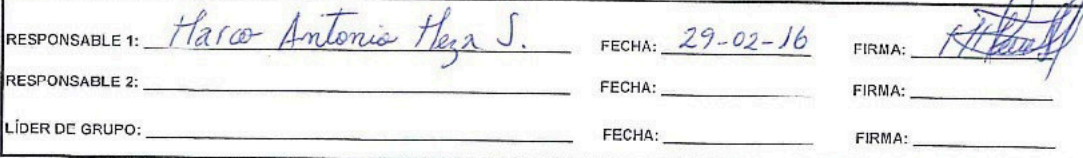 RESPONSABLE 1: Marco Antonio Meza S. FECHA: 29-02-16 FIRMA:
RESPONSABLE 2: FECHA: FIRMA:
LÍDER DE GRUPO: FECHA: FIRMA: